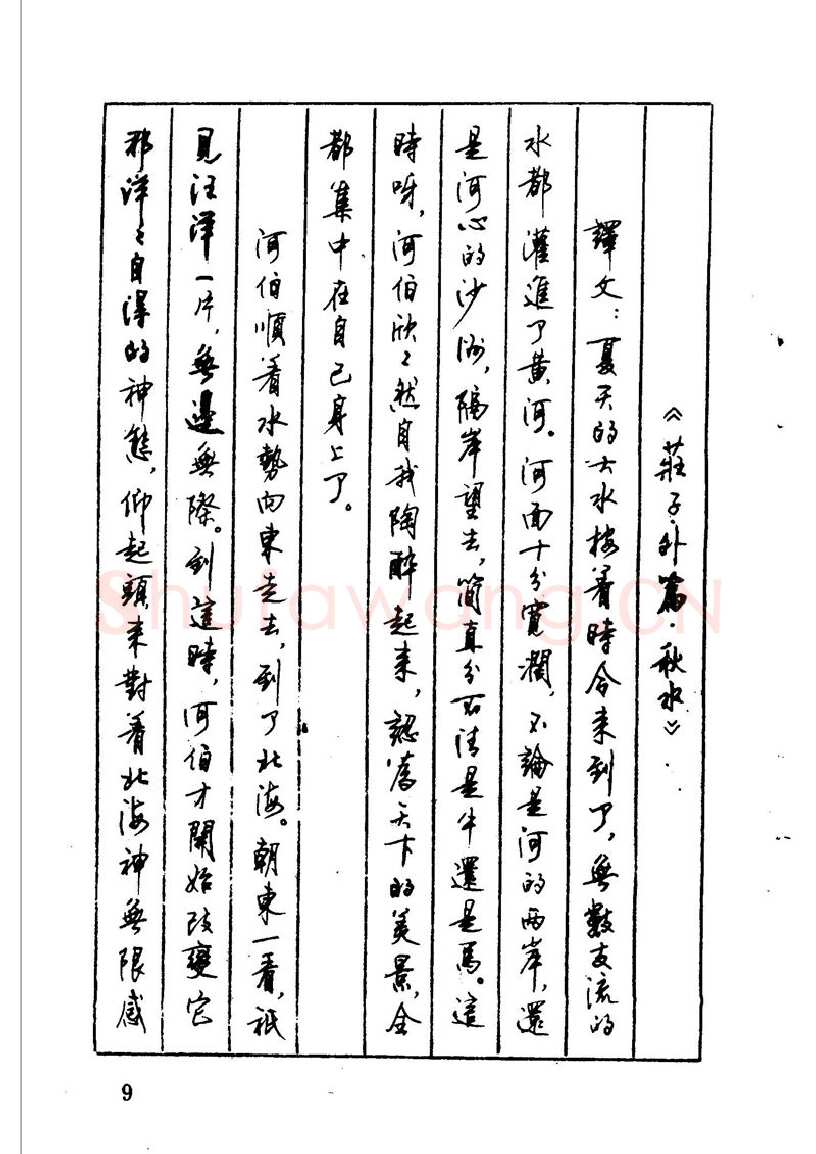 《莊子·外篇 秋水》
譯文：夏天的大水按着時令來到了，無數支流的
水都灌進了黃河。河面十分寬濶，不論是河的兩岸，還
是河心的沙洲，隔岸望去，簡直分不清是牛還是馬。這
時呀，河伯欣〻然自我陶醉起來，認為天下的美景，全
都集中在自己身上了。
河伯順着水勢向東走去，到了北海。朝東一看，祇
見汪洋一片，無邊無際。到這時，河伯才開始改變它
那洋〻自得的神態，仰起頭來對着北海神無限感
9
Shufawang.CN